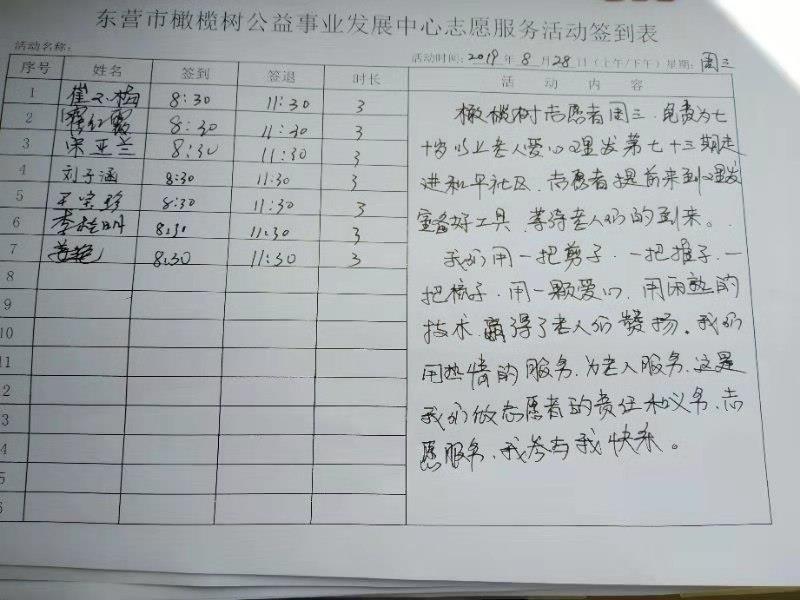 东营市橄榄树公益事业发展中心志愿服务活动签到表
活动名称：
活动时间：2019年8月28日（上午/下午）星期：周三
序号 姓名 签到 签退 时长 活动内容
1 崔小梅 8:30 11:30 3
2 8:30 11:30 3
3 宋亚兰 8:30 11:30 3
4 刘子涵 8:30 11:30 3
5 王宗珍 8:30 11:30 3
6 李桂明 8:30 11:30 3
7 8:30 11:30 3
8
9
10
11
2
3
4
5
6
橄榄树志愿者周三.免费为七
十岁以上老人爱心理发第七十三期走
进和平社区.志愿者提前来到理发
室备好工具.等待老人们的到来。
我们用一把剪子.一把推子.一
把梳子.用一颗爱心.用雨熟的
技术.赢得了老人们赞扬。我们
用热情的服务.为老人服务.这是
我们做志愿者的责任和义务.志
愿服务.我参与我快乐。